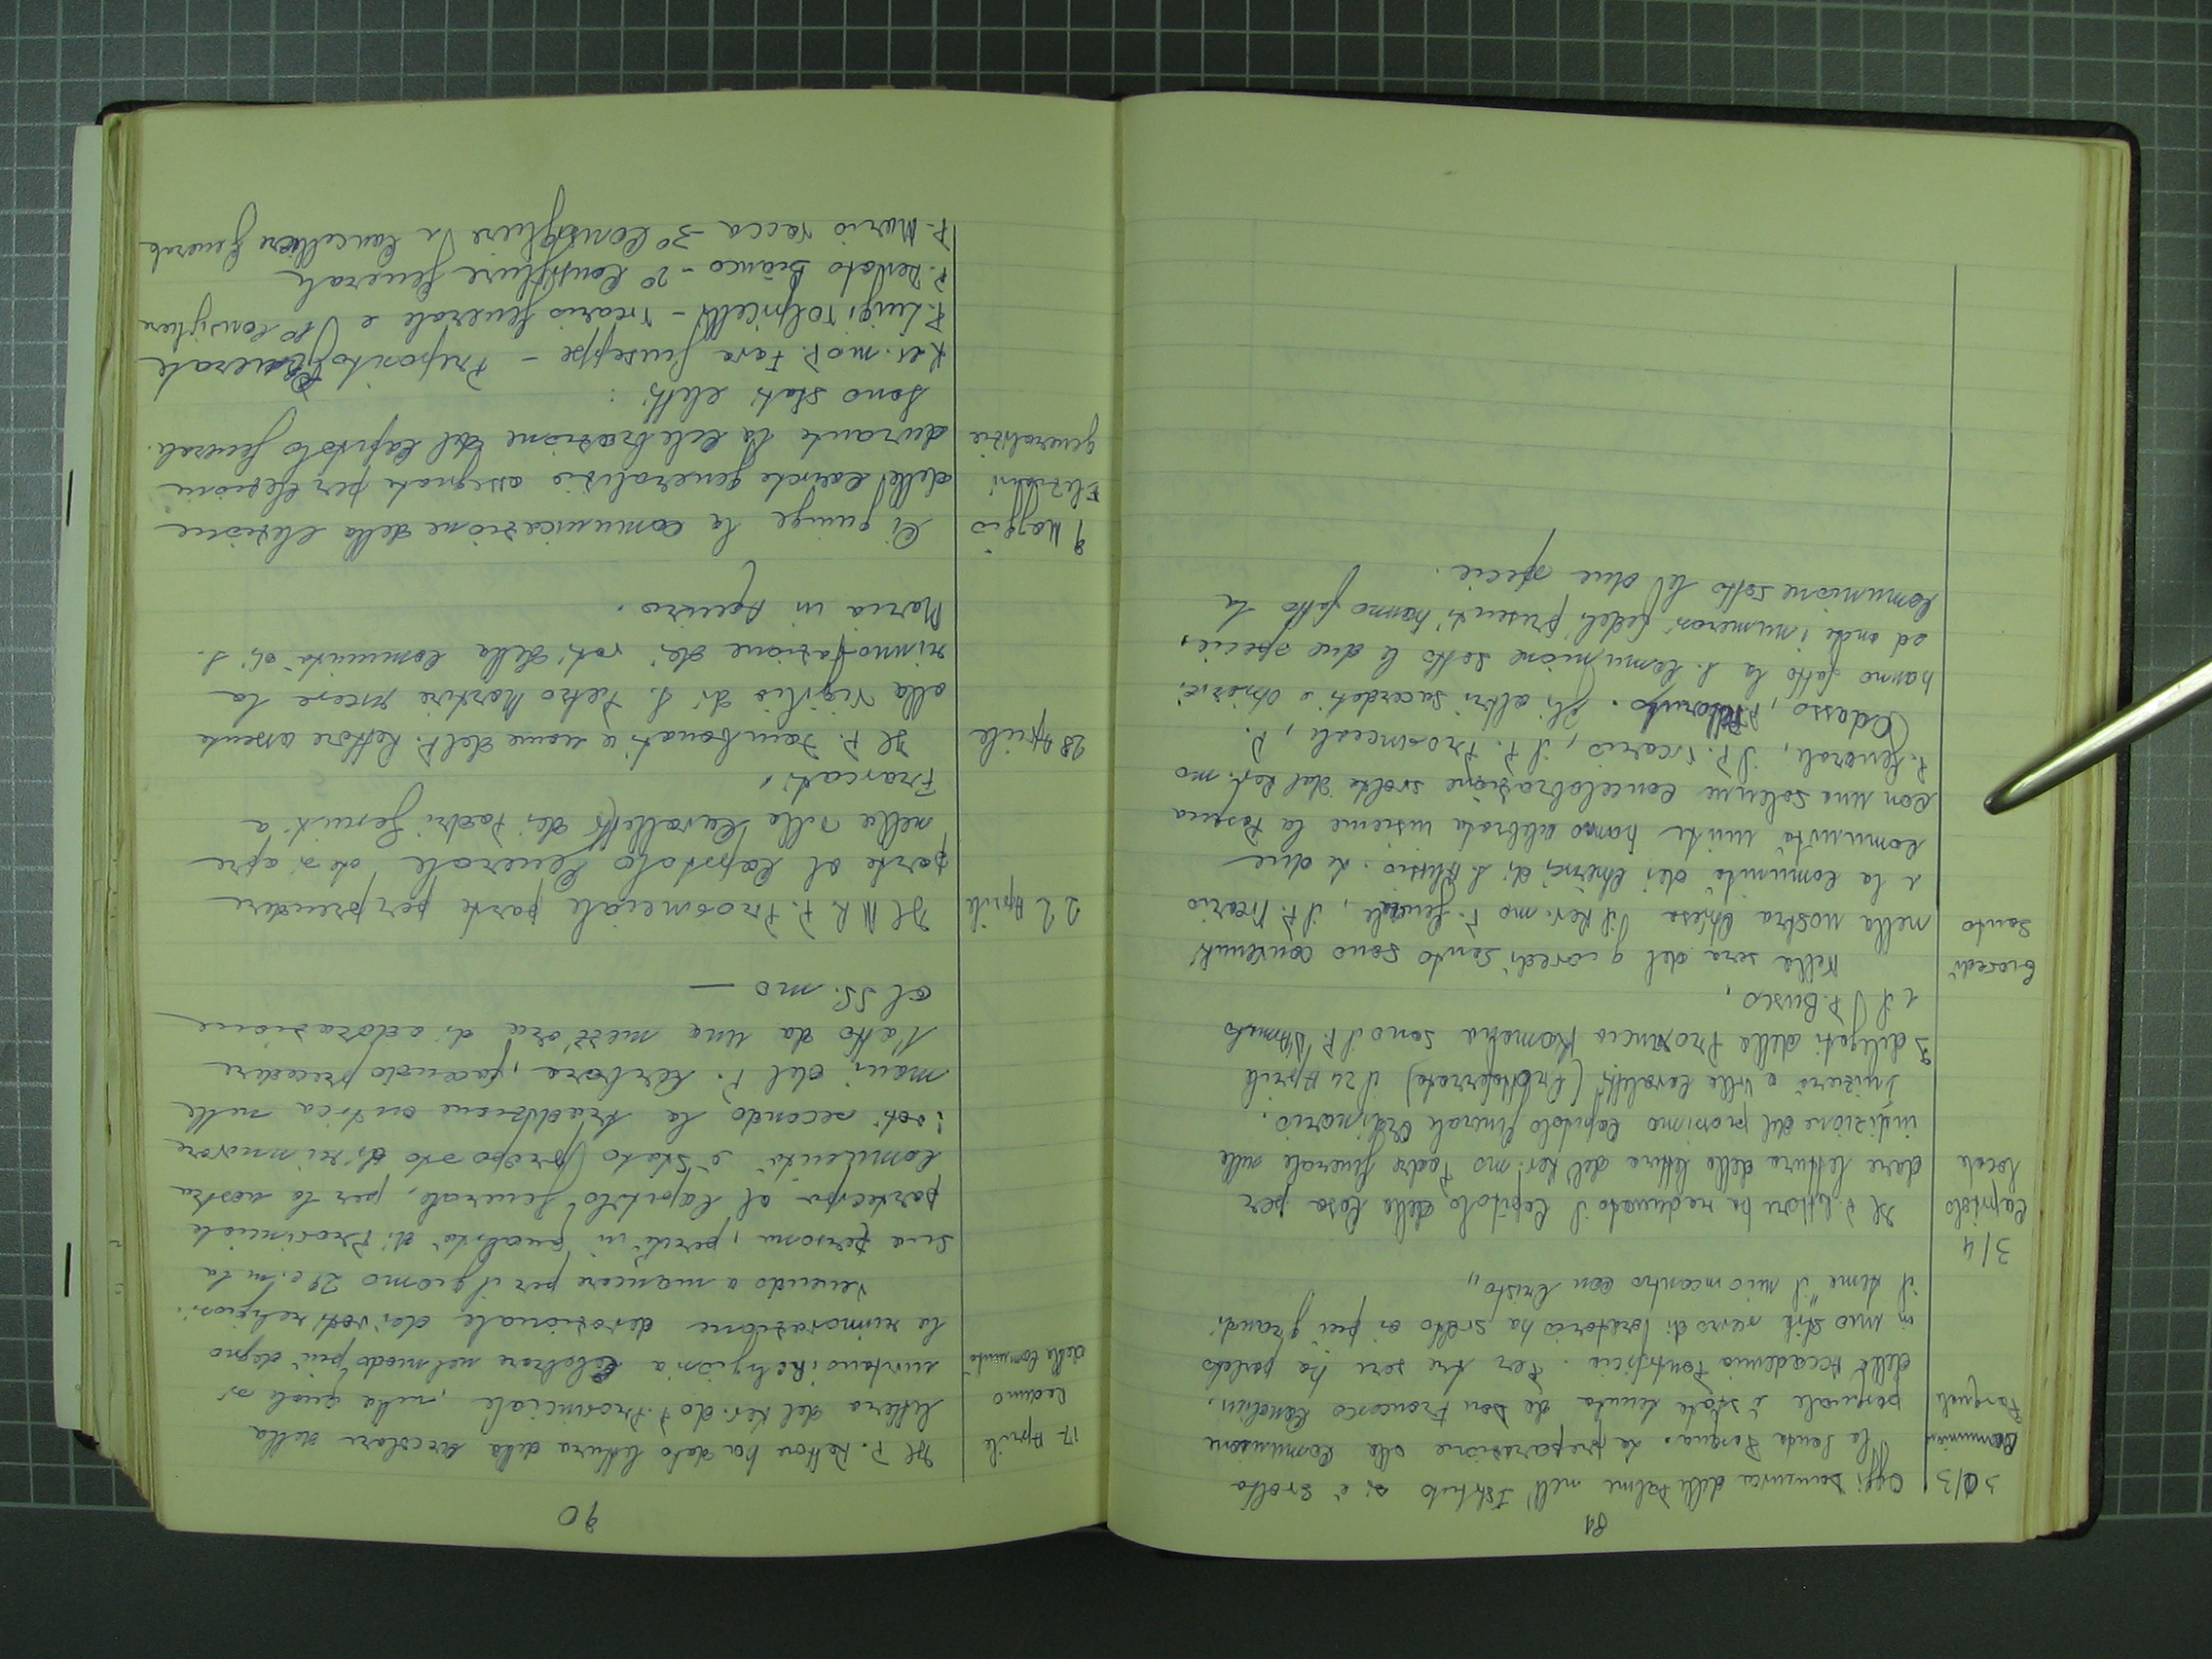 89
30/3 Oggi Domenica delle Palme nell'Istituto si è svolta
Comunione la Santa Pasqua. La preparazione alla Comunione
Pasquale pasquale è stata tenuta da Don Francesco
dell'Accademia Pontificia. Per tre sere ha parlato
in uno stile nuovo di oratoria ha svolto ai più grandi
il tema "il mio incontro con Cristo"
3/4
Capitolo Il P. Rettore ha radunato il Capitolo della Casa per
locale dare lettura della lettera del Rev.mo Padre Generale sulla
indizione del prossimo Capitolo Generale Ordinario.
Inizierà a Villa Cavalletti (Grottaferrata) il 24 Aprile
I delegati della Provincia Romana sono il P.
e il P. Busco,
Giovedì Nella sera del giovedì santo sono convenuti
Santo nella nostra Chiesa il Rev.mo P. Generale, il P. Vicario
e la comunità dei Chierici di S. Alessio. Le due
comunità unite hanno celebrata insieme la Pasqua
con una solenne concelebrazione svolta dal Rev.mo
P. Generale, il P. Vicario, il P. Provinciale, P.
Odasso, Pellorito. Gli altri sacerdoti e
hanno fatto la S. Comunione sotto le due specie,
ed anche i numerosi fedeli presenti hanno fatto la
comunione sotto le due specie.
90
17 Aprile Il P. Rettore ha dato lettura della circolare della
Raduno lettera del Rev.do P. Provinciale, nella quale si
della comunità invitano i Religiosi a celebrare nel modo più degno
la rinnovazione devozionale dei voti religiosi.
Venendo a mancare per il giorno 28 c.m. la
sua persona, perché in qualità di Provinciale
partecipa al Capitolo Generale, per la nostra
comunità è stato proposto di rinnovare
i voti secondo la tradizione antica nelle
mani del P. Cerbara, facendo precedere
l'atto da una mezz'ora di adorazione
al SS.mo —
22 Aprile Il M.R.P. Provinciale parte per prendere
parte al Capitolo Generale che si apre
nella Villa Cavalletti dei Padri Gesuiti a
Frascati,
28 Aprile Il P. Zambonati a nome del P. Rettore assente
alla vigilia di S. Pietro Martire riceve la
rinnovazione dei voti della comunità di S.
Maria in Aquiro.
9 Maggio Ci giunge la comunicazione della elezione
Elezioni delle cariche generalizie assegnate per elezione
generalizie durante la celebrazione del Capitolo Generale.
Sono stati eletti:
Rev.mo P. Fava Giuseppe – Preposito Generale
P. Luigi Volpicelli – Vicario Generale e 1° Consigliere
P. Renato Bianco – 2° Consigliere Generale
P. Mario Vacca – 3° Consigliere e Cancelliere Generale